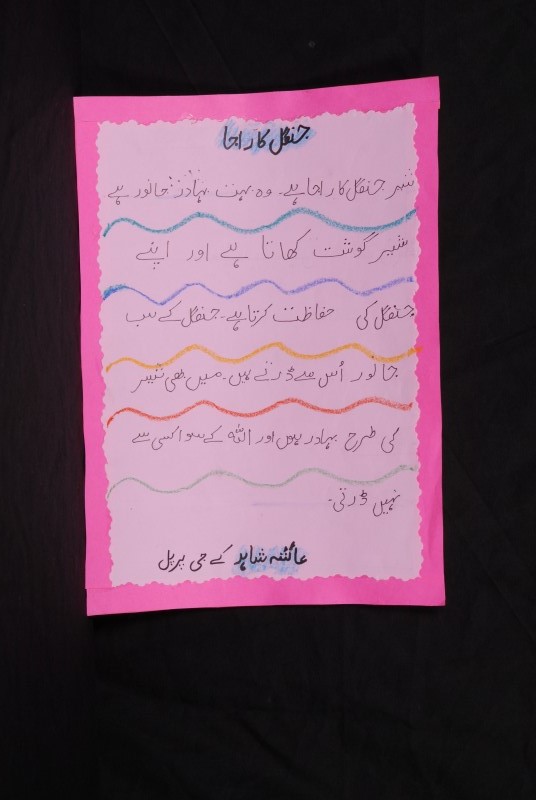 جنگل کا راجا
شیر جنگل کا راجا ہے۔ وہ بہت بہادر جانور ہے
شیر گوشت کھاتا ہے اور اپنے
جنگل کی حفاظت کرتا ہے۔ جنگل کے سب
جانور اُس سے ڈرتے ہیں۔ میں بھی شیر
کی طرح بہادر ہوں اور اللہ کے سوا کسی سے
نہیں ڈرتی۔
عائشہ شاہد کے جی پرپل